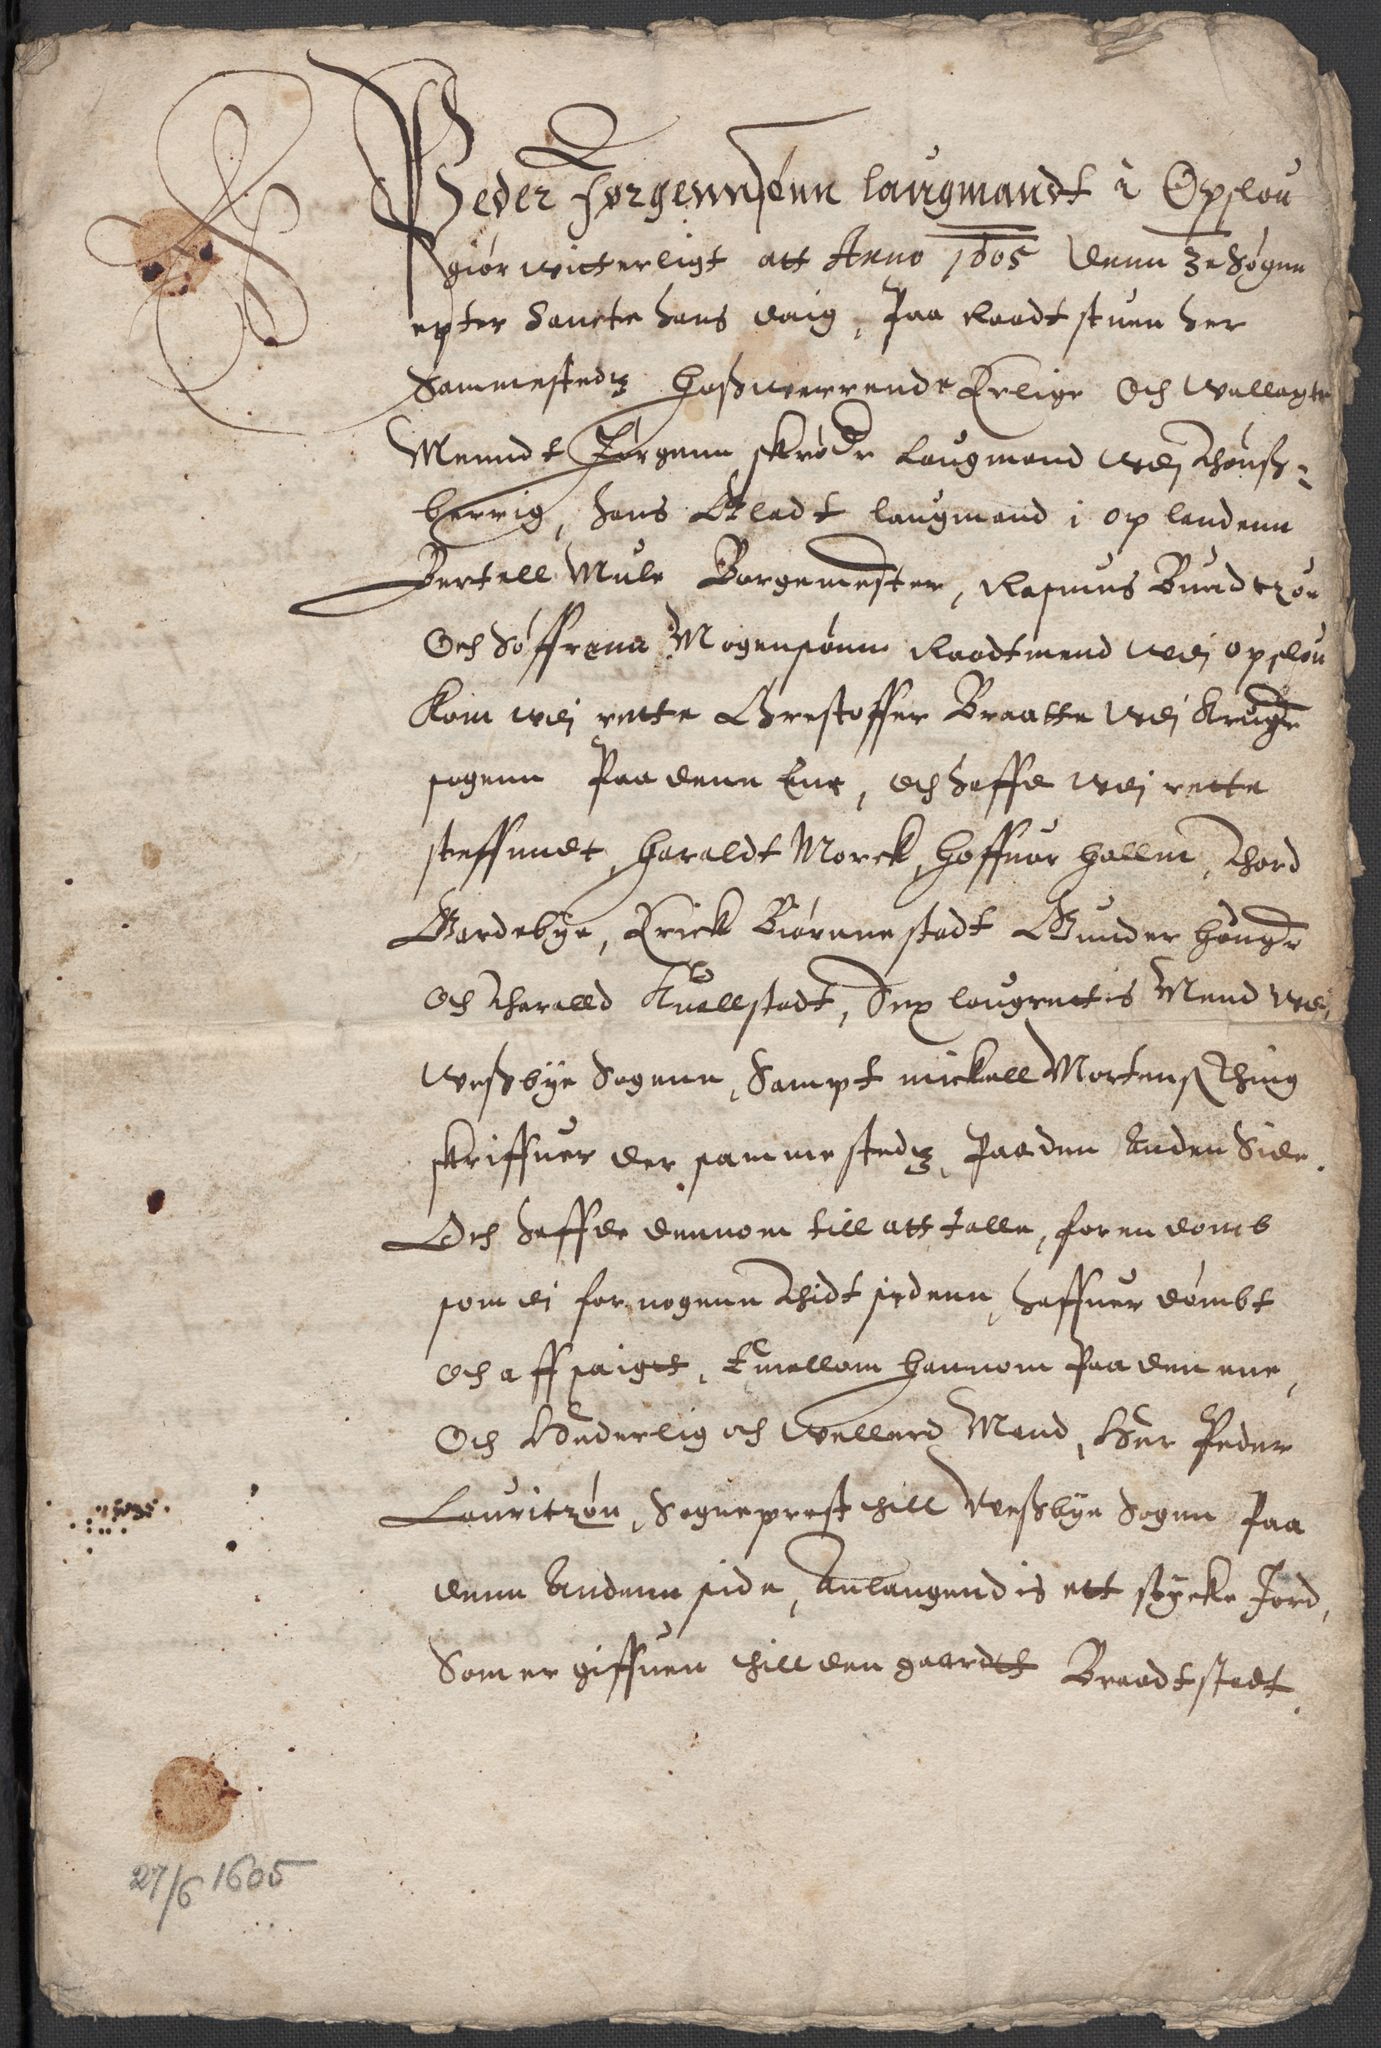 Peder Jørgennsønn laugmandt i Opslou
giør witterligt att Anno 1605 denn 3e Søgne
epter Sancte Hans daig, Paa Raadtstuen her
Sammestedz Hoßwerrende Erlige Och wellagte
Menndt Jørgenn skrøder Laugmand wdj Thønsß-
berrig, Hans Gladt laugmand i oplandenn
Bertell Mule Borgemester, Rasmus Bundtzøn
Och Søffrenn Mogensønn Raadtmend wdj opslou
Kom wdj rette Christoffer Braatte wdj Krog
sogenn Paa denn Ene, och haffde wdj rette
steffnndt, Haraldt Morck, Hoffuor Hollm, Thord
Gardebye, Erick Biørnnestadt Gunder Houger
Och Haralld Kuellstadt, Sex laugrettis Mend wdj
weßbye Sogenn, Sampt mickell Mortensß Thing
skriffuer der sammestedz, Paa den Anden Side.
Och haffde dennom till att talle, for en domb
som di for nogenn Thidt sidenn, haffuer dømbt
och affsaigtt, Emellom hannom Paa den ene,
Och Hederlig och wellerd Mand, Her Peder
Lauritzøn, Sogneprest thill Weßbye Sogen Paa
denn Andenn side, Anlangendis ett støcke Jord,
Som er giffuen thill den gaardtt Braadtstadt.
27/6 1605